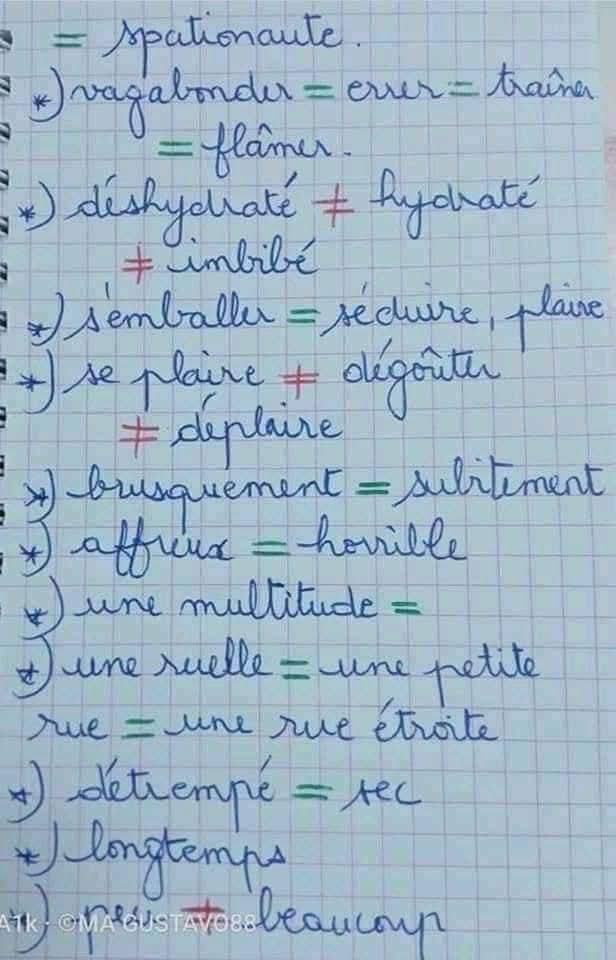 = spationaute.
*) vagabonder = errer = traîner
= flâmer.
*) déshydraté ≠ hydraté
≠ imbibé
*) s'emballer = séduire, plaire
*) se plaire ≠ dégoûter
≠ déplaire
*) brusquement = subitement
*) affreux = horrible
*) une multitude =
*) une ruelle = une petite
rue = une rue étroite
*) détrempé = sec
*) longtemps
*) peu ≠ beaucoup
A1k · ©MA GUSTAVO88